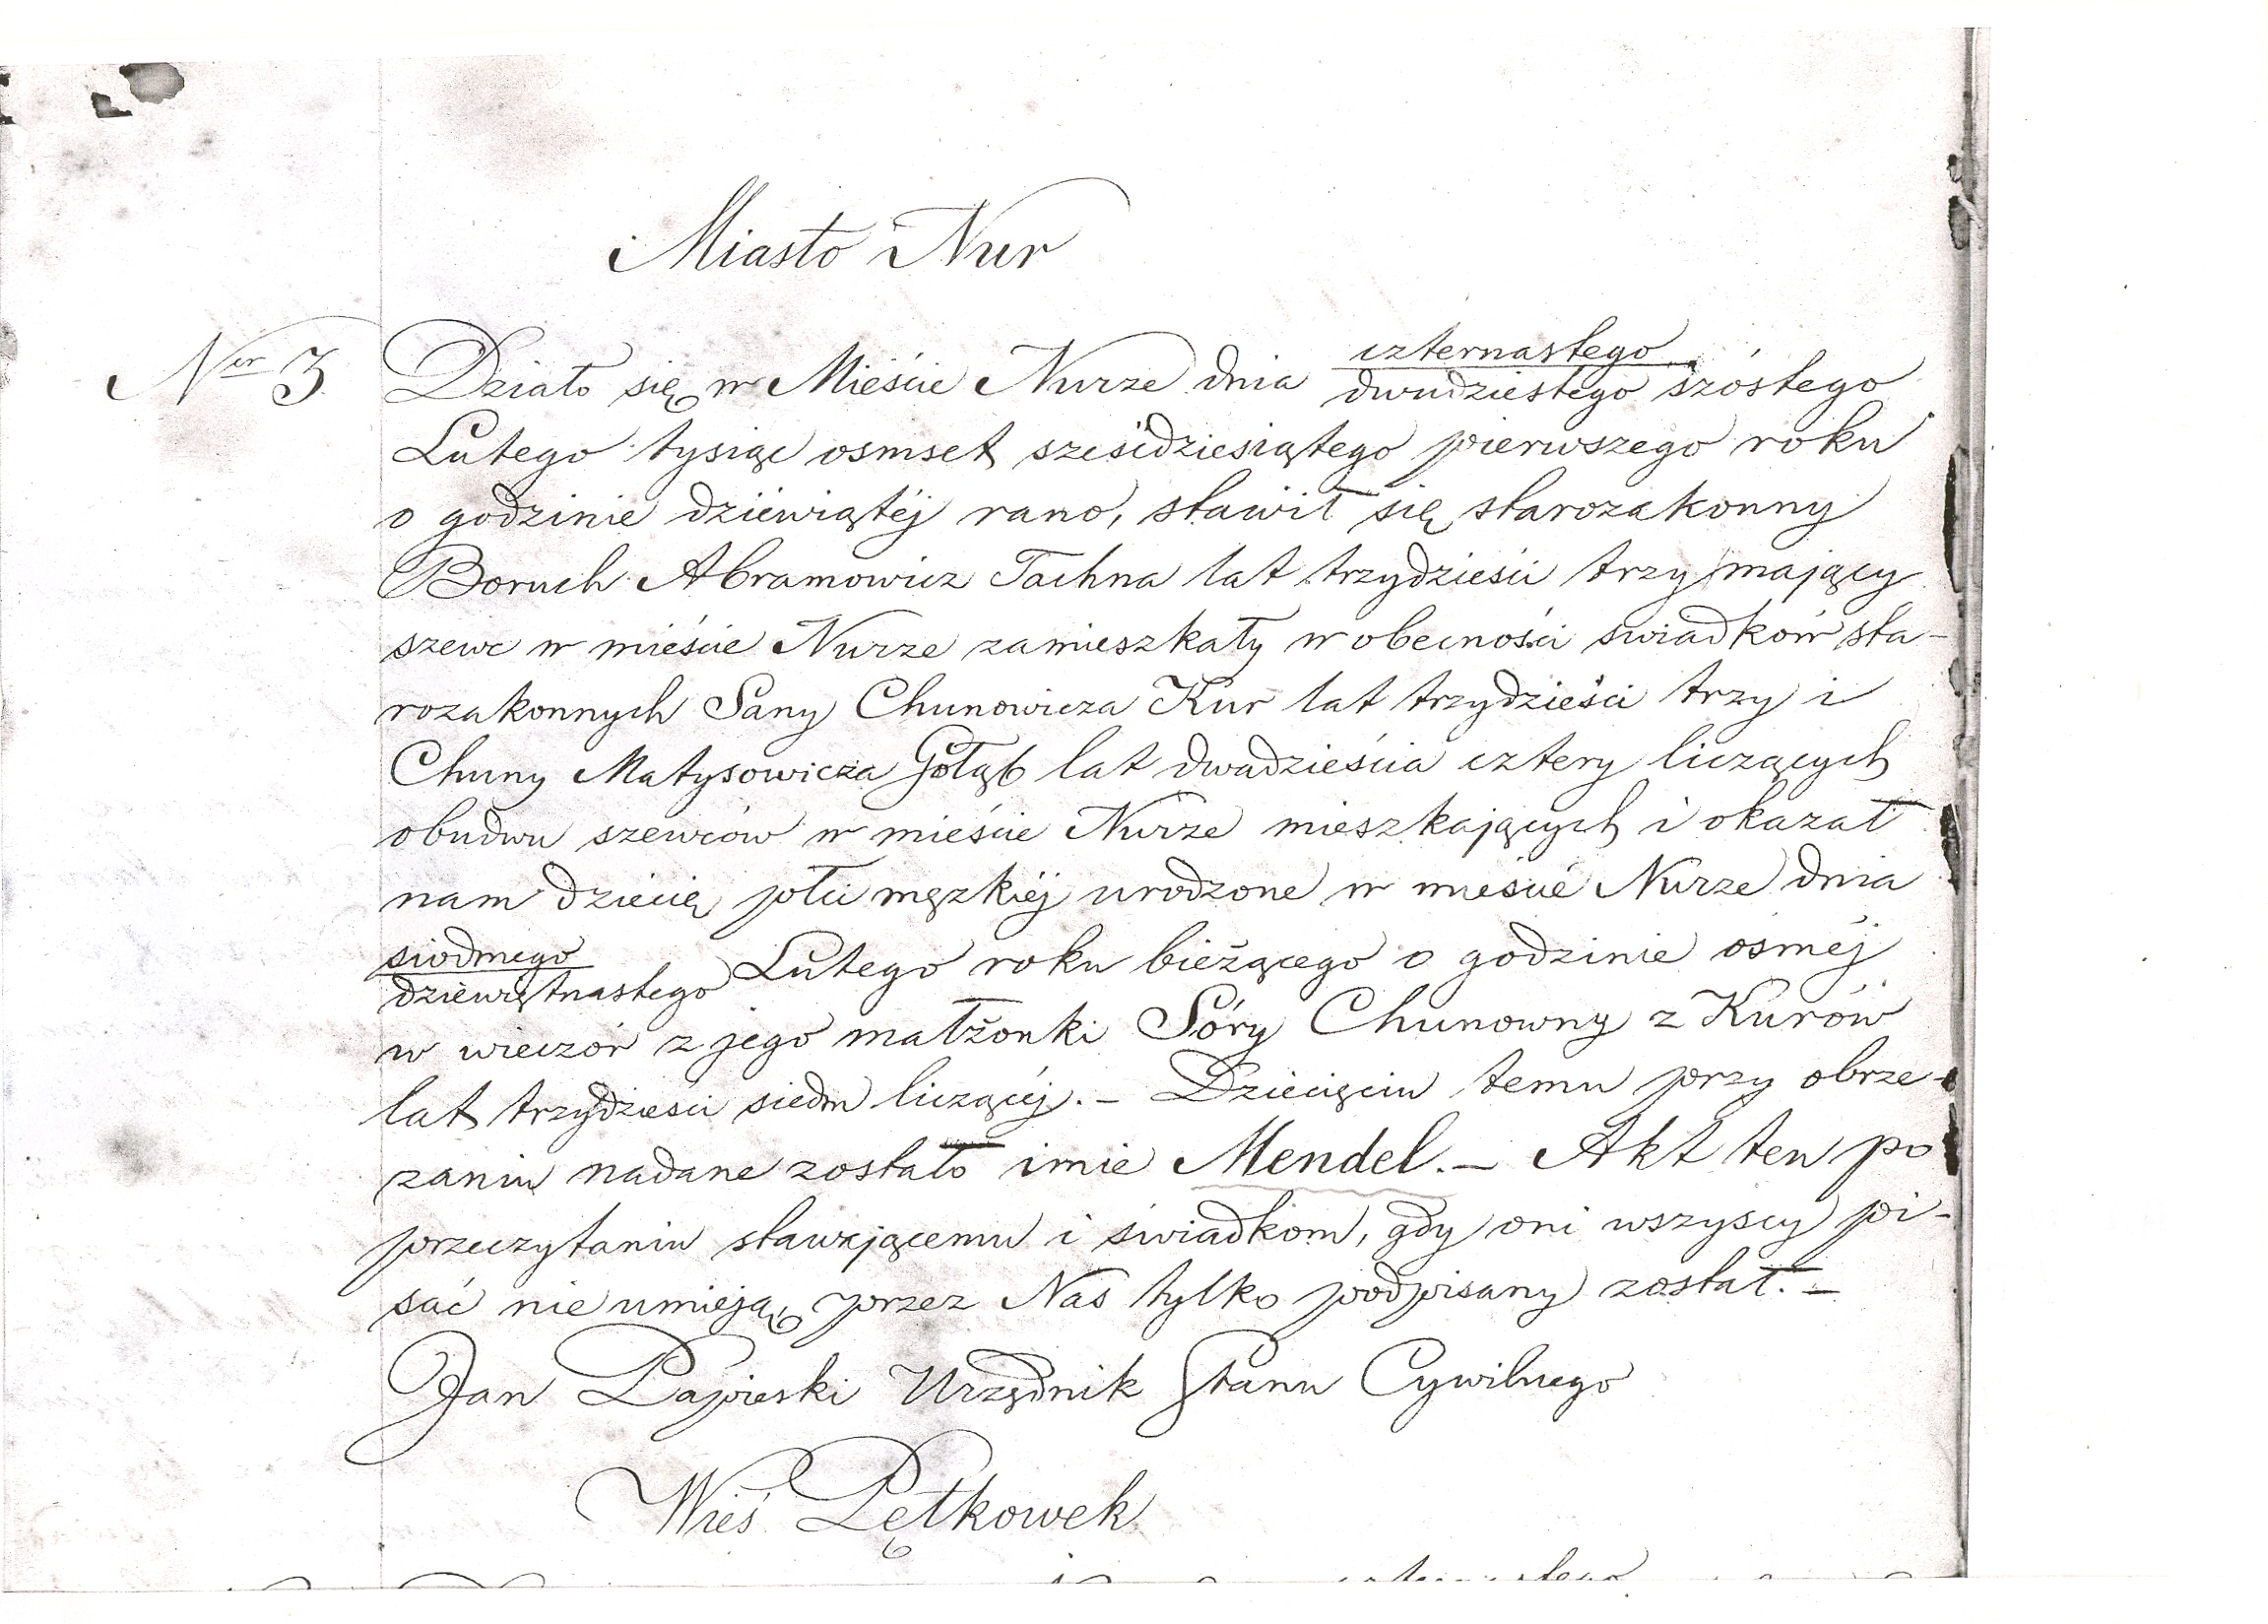 Miasto Nur
Ner 3
czternastego
Działo się w Mieście Nurze dnia dwudziestego szóstego
Lutego tysiąc osmset sześćdziesiątego pierwszego roku
o godzinie dziéwiątéj rano, stawił się starozakonny
Boruch Abramowicz Tachna lat trzydzieści trzy mający
szewc w mieście Nurze zamieszkały w obecności swiadków sta-
rozakonnych Sany Chunowicza Kur lat trzydzieści trzy i
Chuny Matysowicza Gołąb lat dwadzieścia cztery liczących
obudwu szewców w mieście Nurze mieszkających i okazał
nam dziecię płci męzkiéj urodzone w mieście Nurze dnia
siodmego
dziéwiętnastego Lutego roku bieżącego o godzinie osméj
w wieczór z jego małżonki Sóry Chunowny z Kurów
lat trzydzieści siedm liczącéj. – Dziecięciu temu przy obrze-
zaniu nadane zostało imie Mendel. – Akt ten po
przeczytaniu stawającemu i świadkom, gdy oni wszyscy pi-
sać nie umieją, przez Nas tylko podpisany został. –
Jan Urzędnik Stanu Cywilnego
Wieś Łętkowek